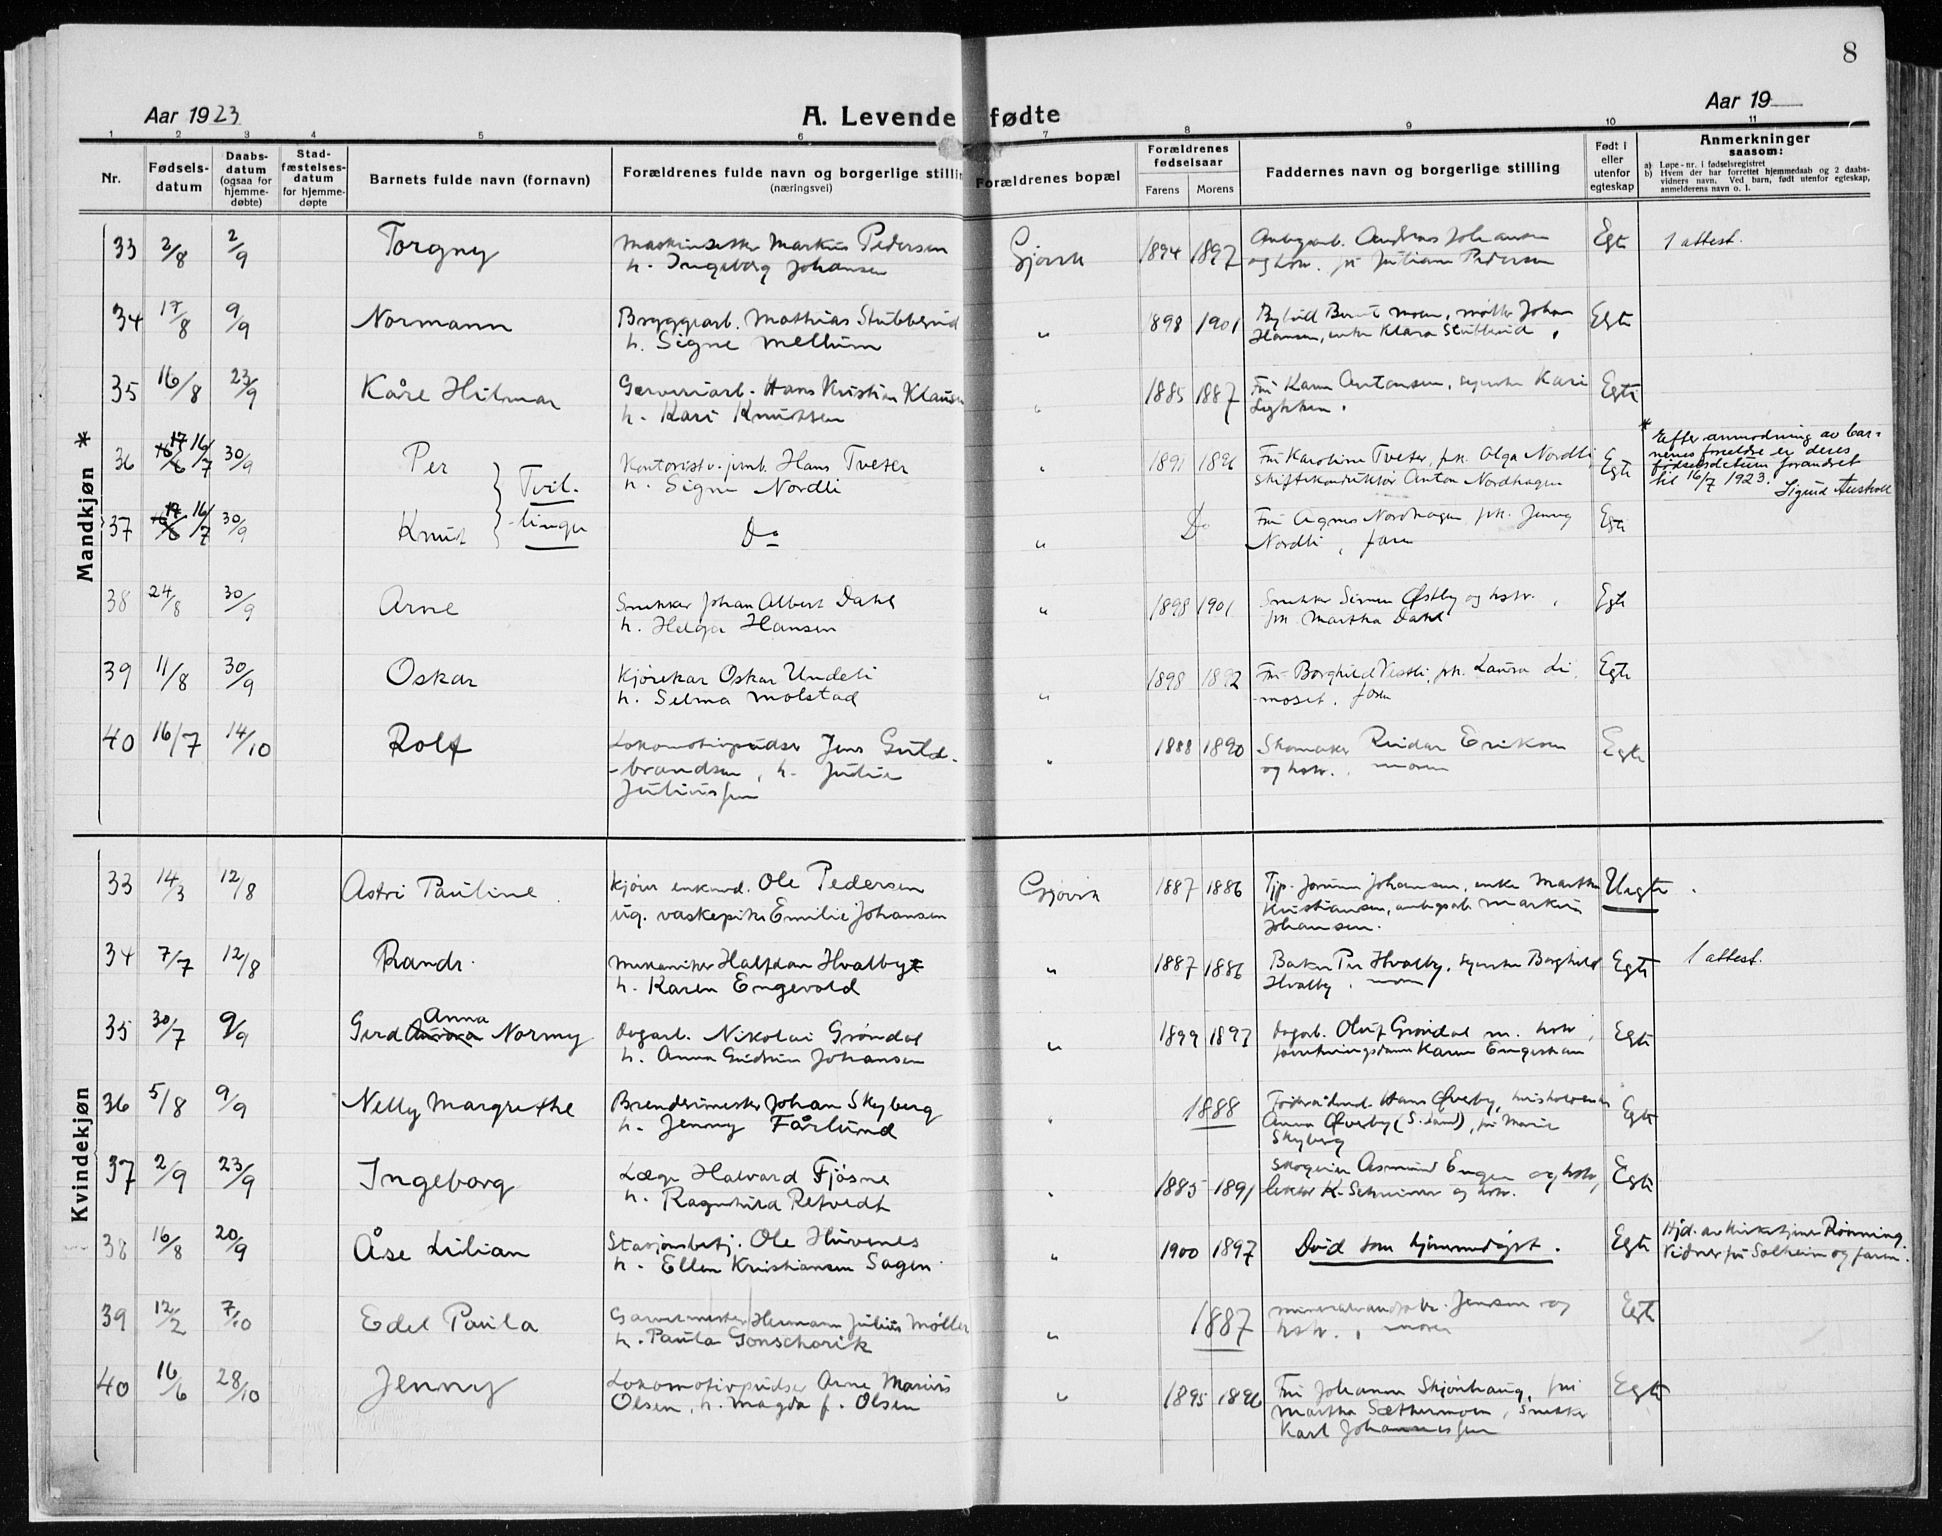 8
Aar 1923
A. Levende fødte
Aar 19
1 2 3 4 5 6 7 8 9 10 11
Nr.
Fødsels-
datum
Daabs-
datum
(ogsaa for
hjemme-
døbte)
Stad-
fæstelses-
datum
for hjemme-
døpte
Barnets fulde navn (fornavn)
Forældrenes fulde navn og borgerlige stillin
(næringsvei)
Forældrenes bopæl
Forældrenes
fødselsaar
Farens Morens
Faddernes navn og borgerlige stilling
Født i
eller
utenfor
egteskap
Anmerkninger
saasom:
a) Løpe-nr. i fødselsregistret
b) Hvem der har forrettet hjemmedaab og 2 daabs-
vidners navn. Ved barn, født utenfor egteskap,
anmelderens navn o. l.
Mandkjøn *
33 2/8 2/9 Torgny Markus Pedersen Gjøvik 1894 1897 Andreas Johansen Egte 1 attest.
h. Ingeborg Johansen og hstr. fr Pedersen
34 17/8 9/9 Normann Bryggearb. Mathias Stubberud " 1898 1901 moen, Johan Egte
h. Signe Mellum Hansen, enke Klara Stubberud
35 16/8 23/9 Kåre Hilmar Garveriarb. Hans Kristian Klausen " 1885 1887 Fru Karen Antonsen, Kari Egte
h. Kari Knudsen
36 17 16/7 30/9 Per Kontorist v. jernb. Hans Tveter " 1891 1896 Fru Karoline Tveter, frk. Olga Nordli Egte
h. Signe Nordli Skiftekonduktør Anton Nordhagen
} Tvil-
-linger
* Efter anmodning av bar-
nenes forældre er deres
fødselsdatum forandret
til 16/7 1923.
Sigurd
37 17 16/7 30/9 Knut Do " Do Fru Agnes Nordhagen, frk. Jenny Egte
Nordli, faren
38 24/8 30/9 Arne Snekker Johan Albert Dahl " 1898 1901 Snekker Simen Østby og hstr. Egte
h. Helga Hansen frk Martha Dahl
39 11/8 30/9 Oskar Kjørekar Oskar Undeli " 1898 1892 Fru Borghild Vestli, frk. Laura Li Egte
h. Selma Molstad -moset. faren
40 16/7 14/10 Rolf Lokomotivpudser Jens Guld- " 1888 1890 Skomaker Reidar Eriksen Egte
-brandsen, h. Julie og hstr. moren
Juliussen
Kvindekjøn
33 14/3 12/8 Astri Pauline Kjører enkemd. Ole Pedersen Gjøvik 1887 1886 Tjp. Johansen, enke Martha Uegte
ug. vaskepike Emilie Johansen Kristiansen, Markus
Johansen.
34 7/7 12/8 Randi Mekaniker Halfdan Hvalbye " 1887 1886 Baker Per Hvalby, Borghild Egte 1 attest.
h. Karen Engevold Hvalby, moren
35 30/7 9/9 Gerd Aurora Anna Normy Dagarb. Nikolai Grøndal " 1899 1897 Dagarb. Oluf Grøndal m. hstr, Egte
h. Anna Gudrun Johansen forretningsdame Karen
36 5/8 9/9 Nelly Margrethe Brenderimester Johan Skyberg " 1888 Hans Øverby, Egte
h. Jenny Fårlund Anna Øverby (S. Land), fr Marie
Skyberg
37 2/9 23/9 Ingeborg Læge Halvard Fjøsne " 1885 1891 Skogeier Asmund Engen og hstr, Egte
h. Ragnhild Refvedt lektor K. Schreiner og hstr.
38 16/8 20/9 Åse Lilian Stasjonsbetj. Ole Huvenes " 1900 1897 Død som hjemmedøpt. Egte Hjd. av kirketjener Rønning.
h. Ellen Kristiansen Sagen Vidner fru Solheim og faren.
39 12/2 7/10 Edel Paula Garvermester Hermann Julius Møller " 1887 Jensen og Egte
h. Paula Gonschorik hstr., moren
40 16/6 28/10 Jenny Lokomotivpudser Arne Marius " 1895 1896 Fru Johanne Skjønhaug, fru Egte
Olsen, h. Magda f. Olsen Martha Sæthermoen, Snekker
Karl Johannessen